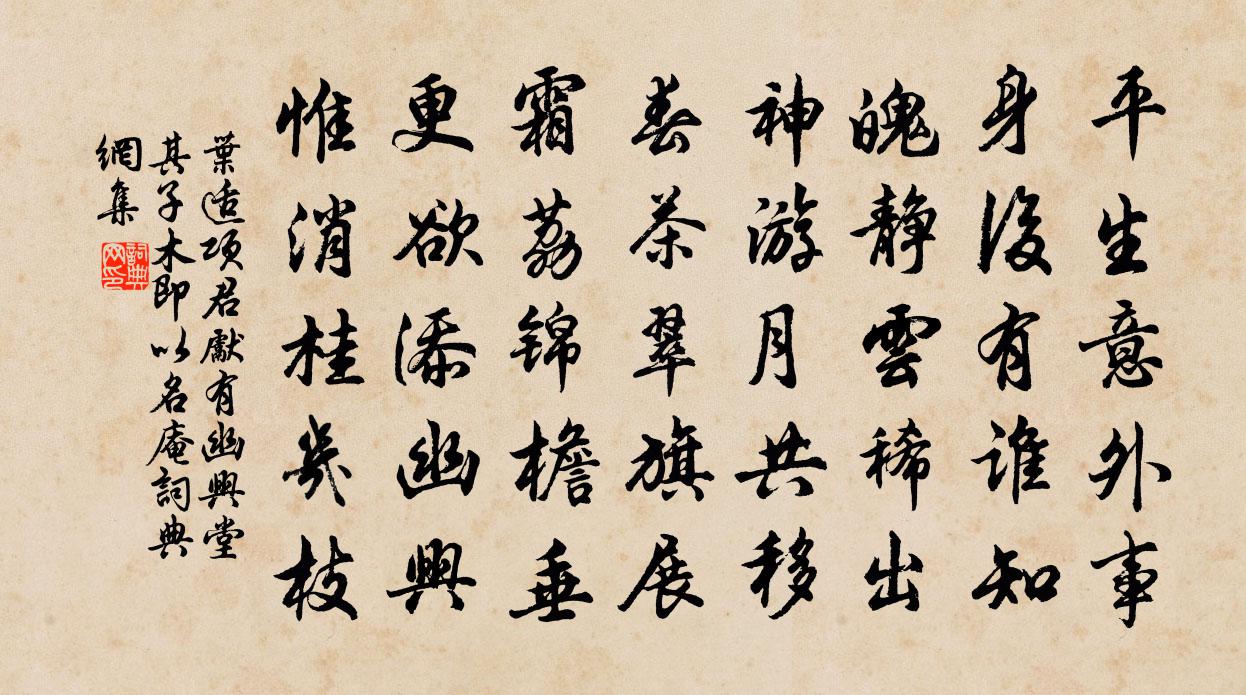 平生意外事
身後有誰知
魄靜雲稀出
神游月共移
春茶翠旗展
霜荔锦檐垂
更欲添幽興
惟消桂幾枝
葉适項君獻有幽興堂
其子木即以名庵詞典
網集